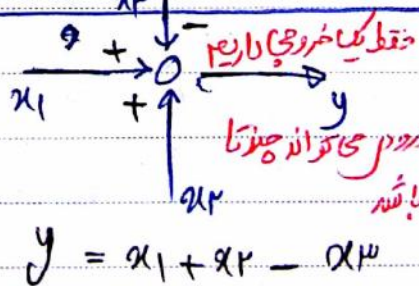 x۳
−
فقط یک خروجی داریم
x۱ + + y
ورودی می تواند چندتا
باشد
x۲
y = x۱ + x۲ − x۳